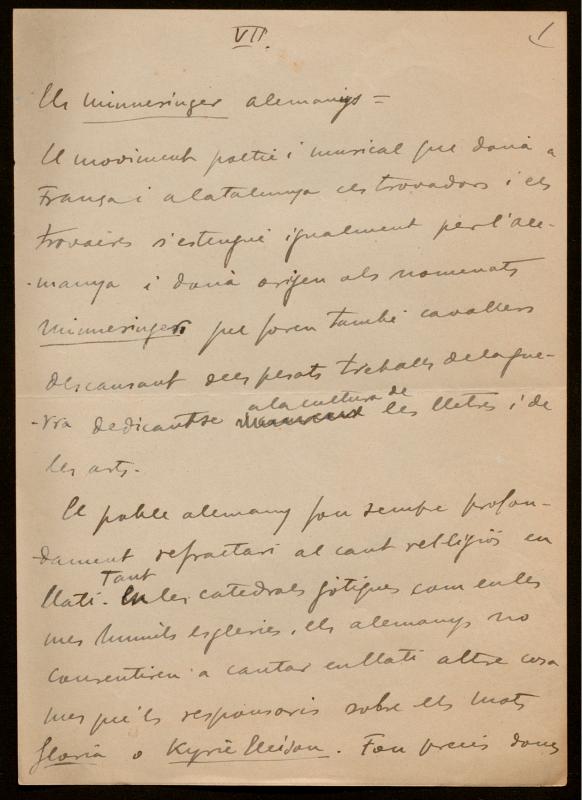 VII.
1
Els Minnesinger alemanys =
El moviment poètic i musical que donà a
França i a Catalunya els trovadors i els
trovaires s'estengué igualment per l'Ale-
-manya i donà origen als nomenats
Minnesinger, que foren també cavallers
descansant dels pesats treballs de la gue-
-rra dedicantse a la cultura de les lletres i de
les arts.
El poble alemany fou sempre profon-
-dament refractari al cant relligiós en
llatí. Tant en les catedrals gòtiques com en les
mes humils esglesies, els alemanys no
consentiren a cantar en llatí altre cosa
mes que'ls responsoris sobre els mots
Gloria o Kyrie Eleison. Fou precis doncs